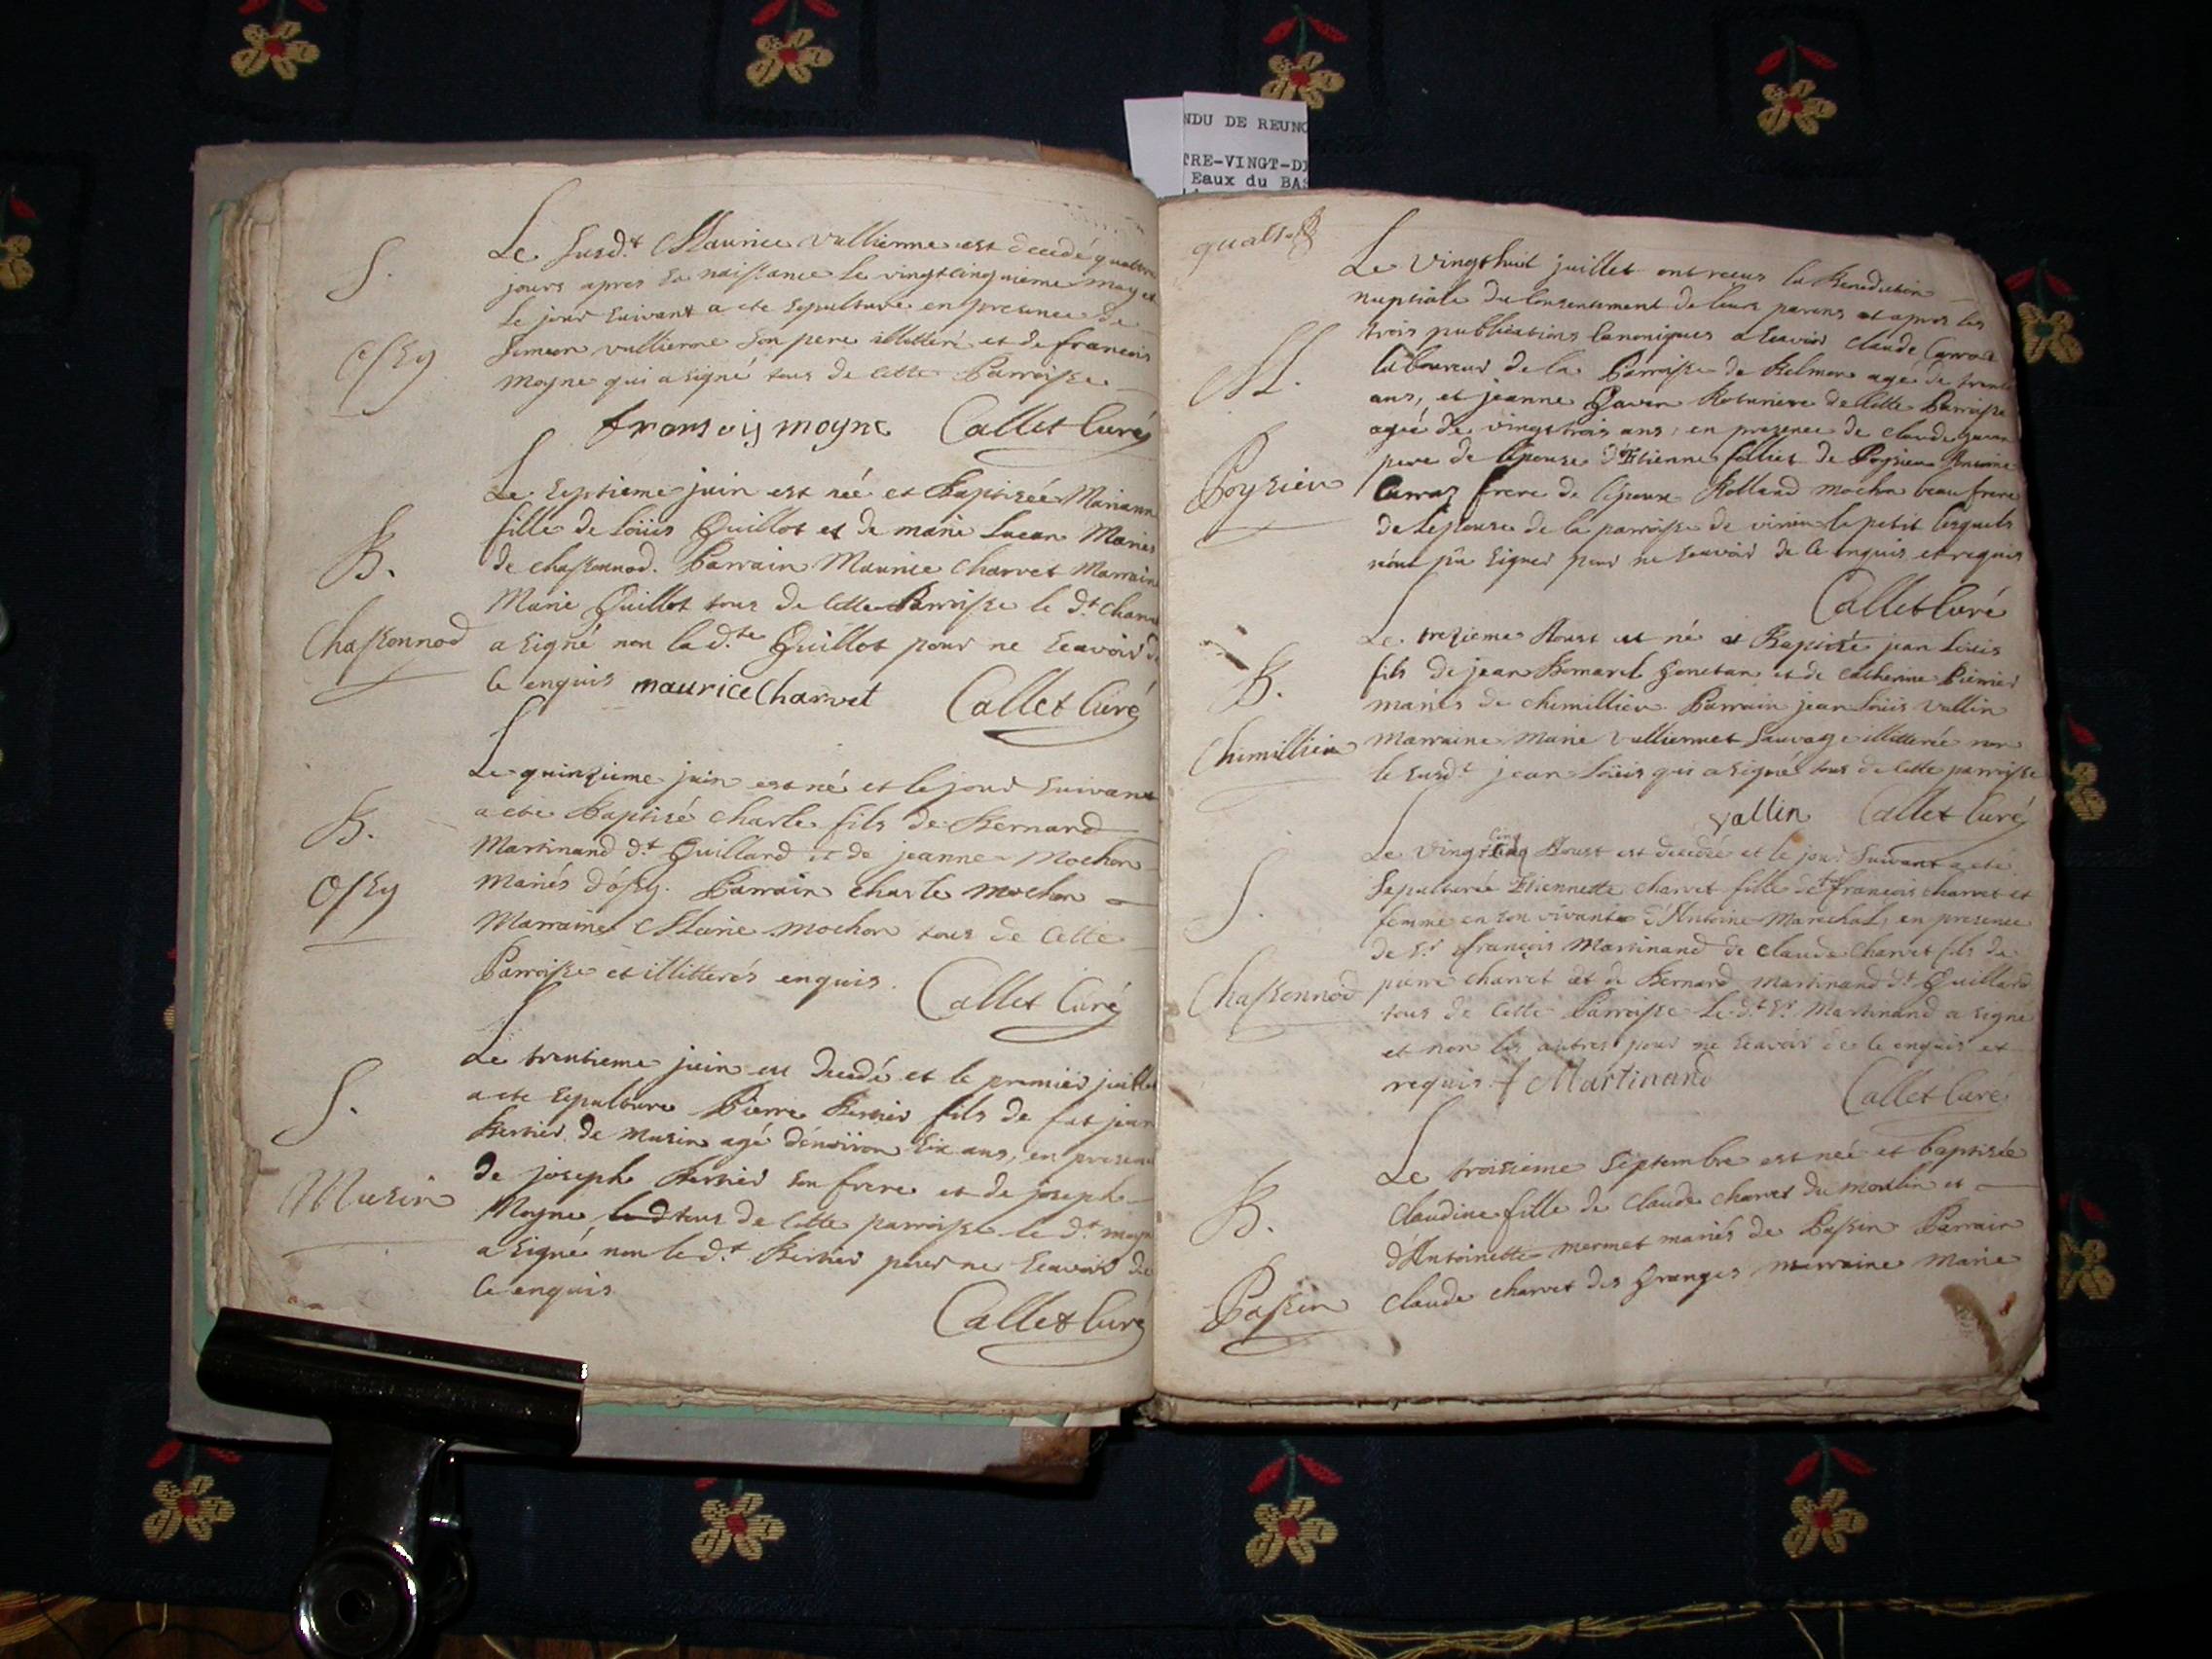 NDU DE REUNO
TRE-VINGT-DI
Eaux du BAS
S.
Ossy
Le susd.t Maurice Vullierme est decedé quattre
jours apres sa naissance le vingtcinquieme may et
le jour suivant a ete sepulture en presence de
Simeon vullierme son pere illitteré et de francois
moyne qui a signé tous de cette Parroisse
fransois moyne Callet Curé
B.
Chassonnod
Le septieme juin est née et Baptisée Mariann
fille de Loüis Quillot et de marie Mariés
de chassonnod. Parrain Maurice Charvet Marraine
Marie Quillot tous de cette Parroisse le d.t Charv
a signé non la d.te Quillot pour ne scavoir d
ce enquis maurice Charvet Callet Curé
B.
Ossy
Le quinzieme juin est né et le jour suivant
a ete Baptisé charle fils de Bernard
Martinand d.t Quillard et de jeanne Mochon
Mariés d'ossy. Parrain charle mochon
Marraine mochon tous de cette
Parroisse et illitterés enquis. Callet Curé
S.
Musin
Le trentieme juin est decedé et le premier juillet
a ete sepulture Pierre Bernier fils de fut jean
Bernier de Musin agé d'environ six ans, en presence
de joseph Bernier son frere et de joseph
Moyne le d tous de cette parroisse le d.t moyn
a signé non le d.t Bernier pour ne scavoir de
ce enquis
Callet Curé
quatre
M.
Poysieu
Le vingthuit juillet ont recus la Benediction
nuptiale du consentement de leurs parens et apres les
trois publications Canoniques a scavoir claude Carraz
laboureur de la Parroisse de Belmon agé de trente
ans, et jeanne de cette Parroisse
ageé de vingttrois ans, en presence de claude
pere de lepouse d'Etienne de Poysieu Antoine
Carraz frere de l'epoux Rolland mochon beau frere
de lepouse de la parroisse de virieu le petit lesquels
n'ont pu signer pour ne scavoir de ce enquis et requis
Callet Curé
B.
Chemillieu
Le treizieme Aoust est né et Baptisé jean Loüis
fils de jean et de catherine
mariés de chemillieu Parrain jean Loüis vallin
Marraine Marie Vulliermet Sauvage illitterée non
le susd.t jean Loüis qui a signé tous de cette parroisse
vallin Callet Curé
S.
Chassonnod
Le vingt cinq Aoust est decedée et le jour suivant a ete
sepulturée Etiennette charvet fille de fut francois charvet et
femme en son vivant d'Antoine Marechal, en presence
de S.r françois Martinand de claude Charvet fils de
pierre charvet et de Bernard martinand d.t Quillard
tous de cette Parroisse Le d.t S.r Martinand a signé
et non les autres pour ne scavoir de ce enquis et
requis. f Martinand Callet Curé
B.
Passin
Le troisieme Septembre est née et baptisée
Claudine fille de Claude charvet du moulin et
d'Antoinette mermet mariés de Passin Parrain
Claude charvet des Granges marraine Marie